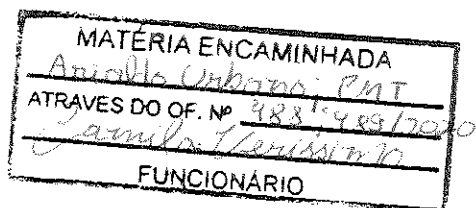 MATÉRIA ENCAMINHADA
Urbano; PMT
ATRAVES DO OF. Nº 488 489/2020
Camila Veríssimo
FUNCIONÁRIO